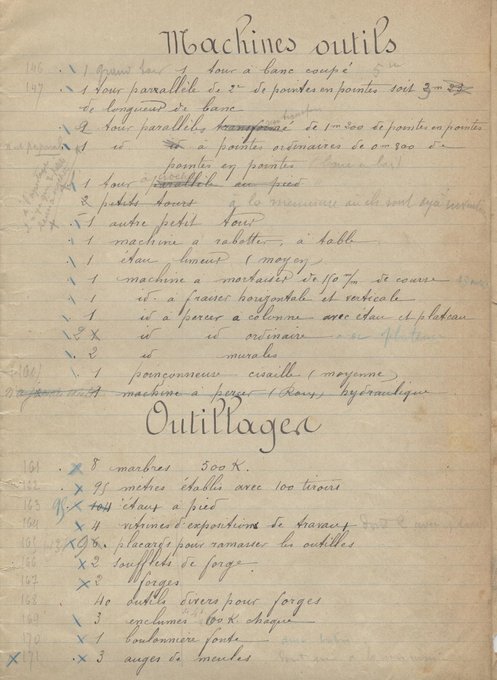 Machines outils
146 1 grand tour 1 tour a banc coupé 5m
147 1 tour parralèle de 2m de pointes en pointes soit 3m 25
de longueur de banc
2 tour parallèles transformé de 1m200 de pointes en pointes
1 id id à pointes ordinaires de 0m800 de
pointes en pointes
1 tour parallèle au pied à crochet
2 petits tours à la menuiserie ou ils sont déjà
1 autre petit tour
1 machine a rabotter, à table
1 étau limeur (moyen)
1 machine a mortaiser de 150 m/m de course
1 id. a fraiser horizontale et verticale
1 id a percer a colonne avec étau et plateau
2 x id id ordinaire
2 id murales
1 poinçonneuse cisaille (moyenne)
1 machine à percer (Roux) hydraulique
Outillages
161 x 8 marbres 500 K.
162 x 95 mètres établis avec 100 tiroirs
163 95 x 104 étaux a pied
164 x 4 vitrines d'expositions de travaux dont
165 x 98 placards pour ramasser les outilles
166 x 2 soufflets de forge
167 x 2 forges
168 40 outils divers pour forges
169 3 enclumes 100 K. chaque
170 1 boulonnière fonte
x 171 x 3 auges de meules